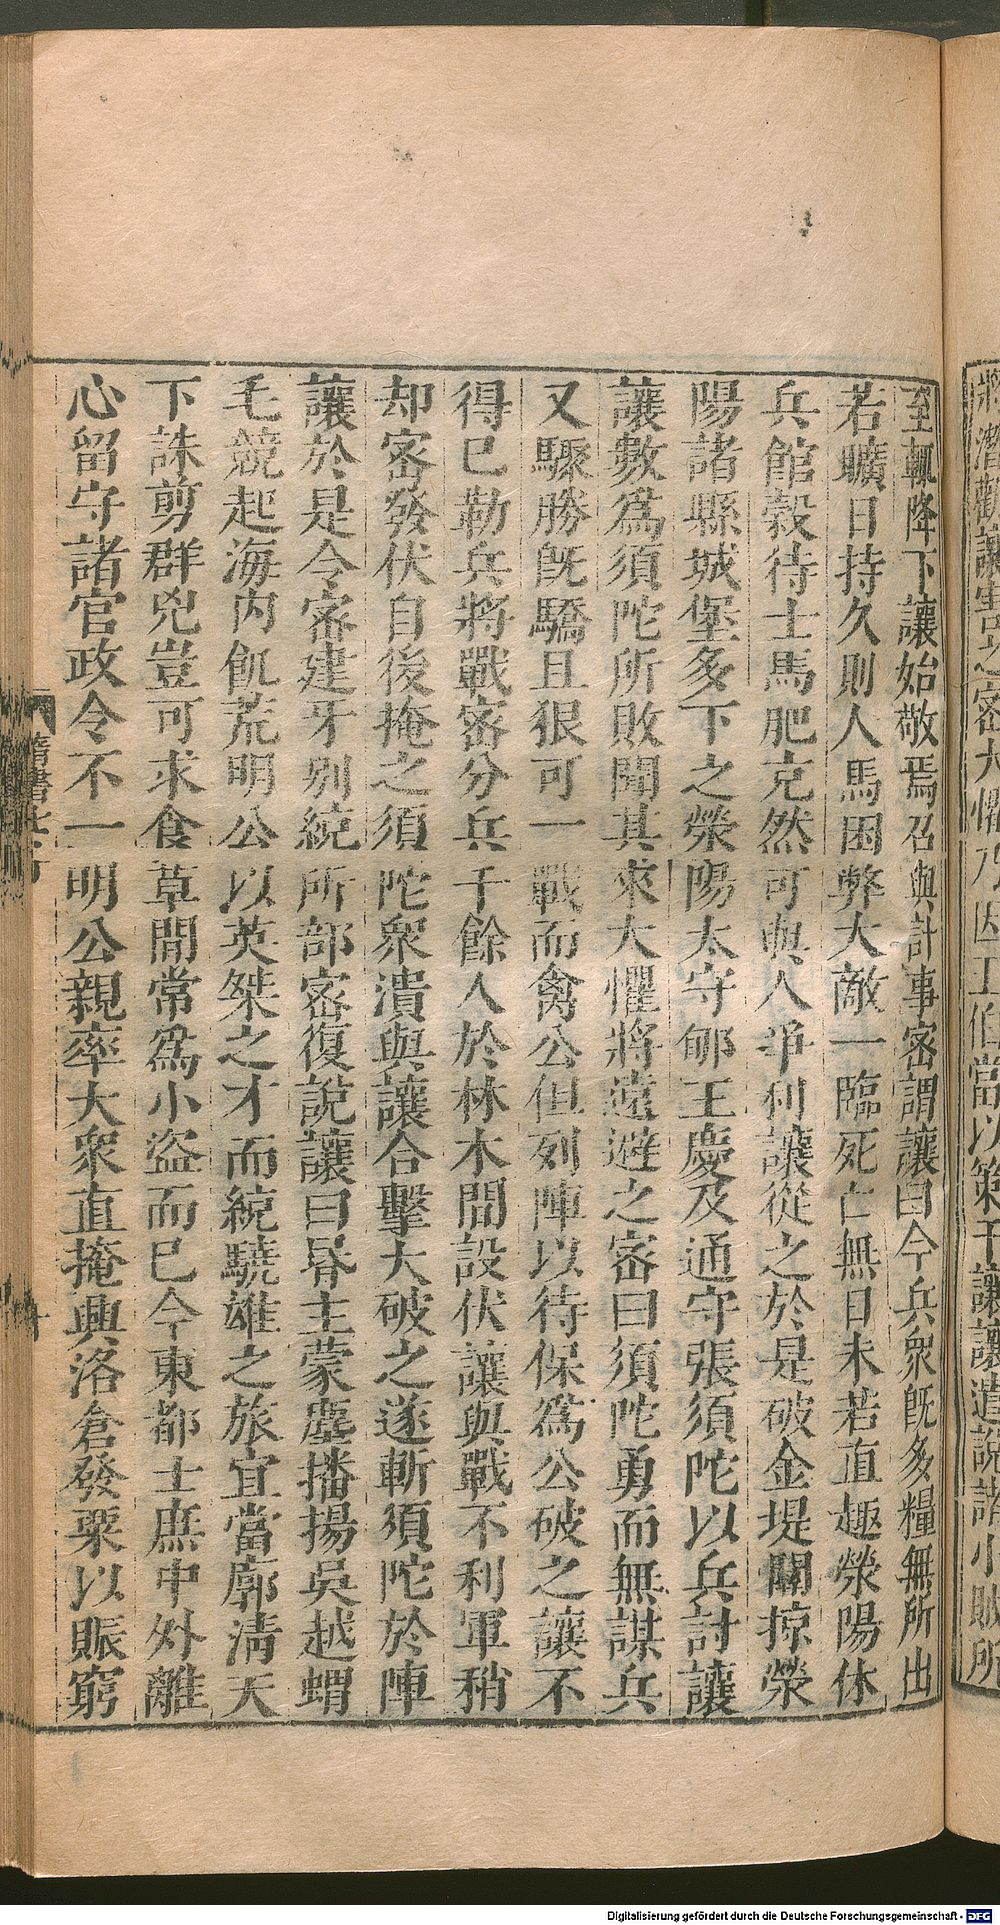 將潛觀讓害之密大懼乃因王伯當以策干讓讓遣說諸小賊所
至輒降下讓始敬焉召與計事密謂讓曰今兵衆旣多糧無所出
若曠日持久則人馬困弊大敵一臨死亡無日未若直趣滎陽休
兵館穀待士馬肥充然可與人爭利讓從之於是破金堤關掠滎
陽諸縣城堡多下之滎陽太守郇王慶及通守張須陀以兵討讓
讓數爲須陀所敗聞其來大懼將遠避之密曰須陀勇而無謀兵
又驟勝旣驕且狠可一戰而禽公但列陣以待保爲公破之讓不
得已勒兵將戰密分兵千餘人於林木間設伏讓與戰不利軍稍
却密發伏自後掩之須陀衆潰與讓合擊大破之遂斬須陀於陣
讓於是令密建牙别統所部密復說讓曰昬主蒙塵播揚吳越蝟
毛競起海内飢荒明公以英桀之才而統驍雄之旅宜當廓清天
下誅剪群兇豈可求食草間常爲小盜而已今東都士庶中外離
心留守諸官政令不一明公親率大衆直掩興洛倉發粟以賑窮
隋書
Digitalisierung gefördert durch die Deutsche Forschungsgemeinschaft - DFG